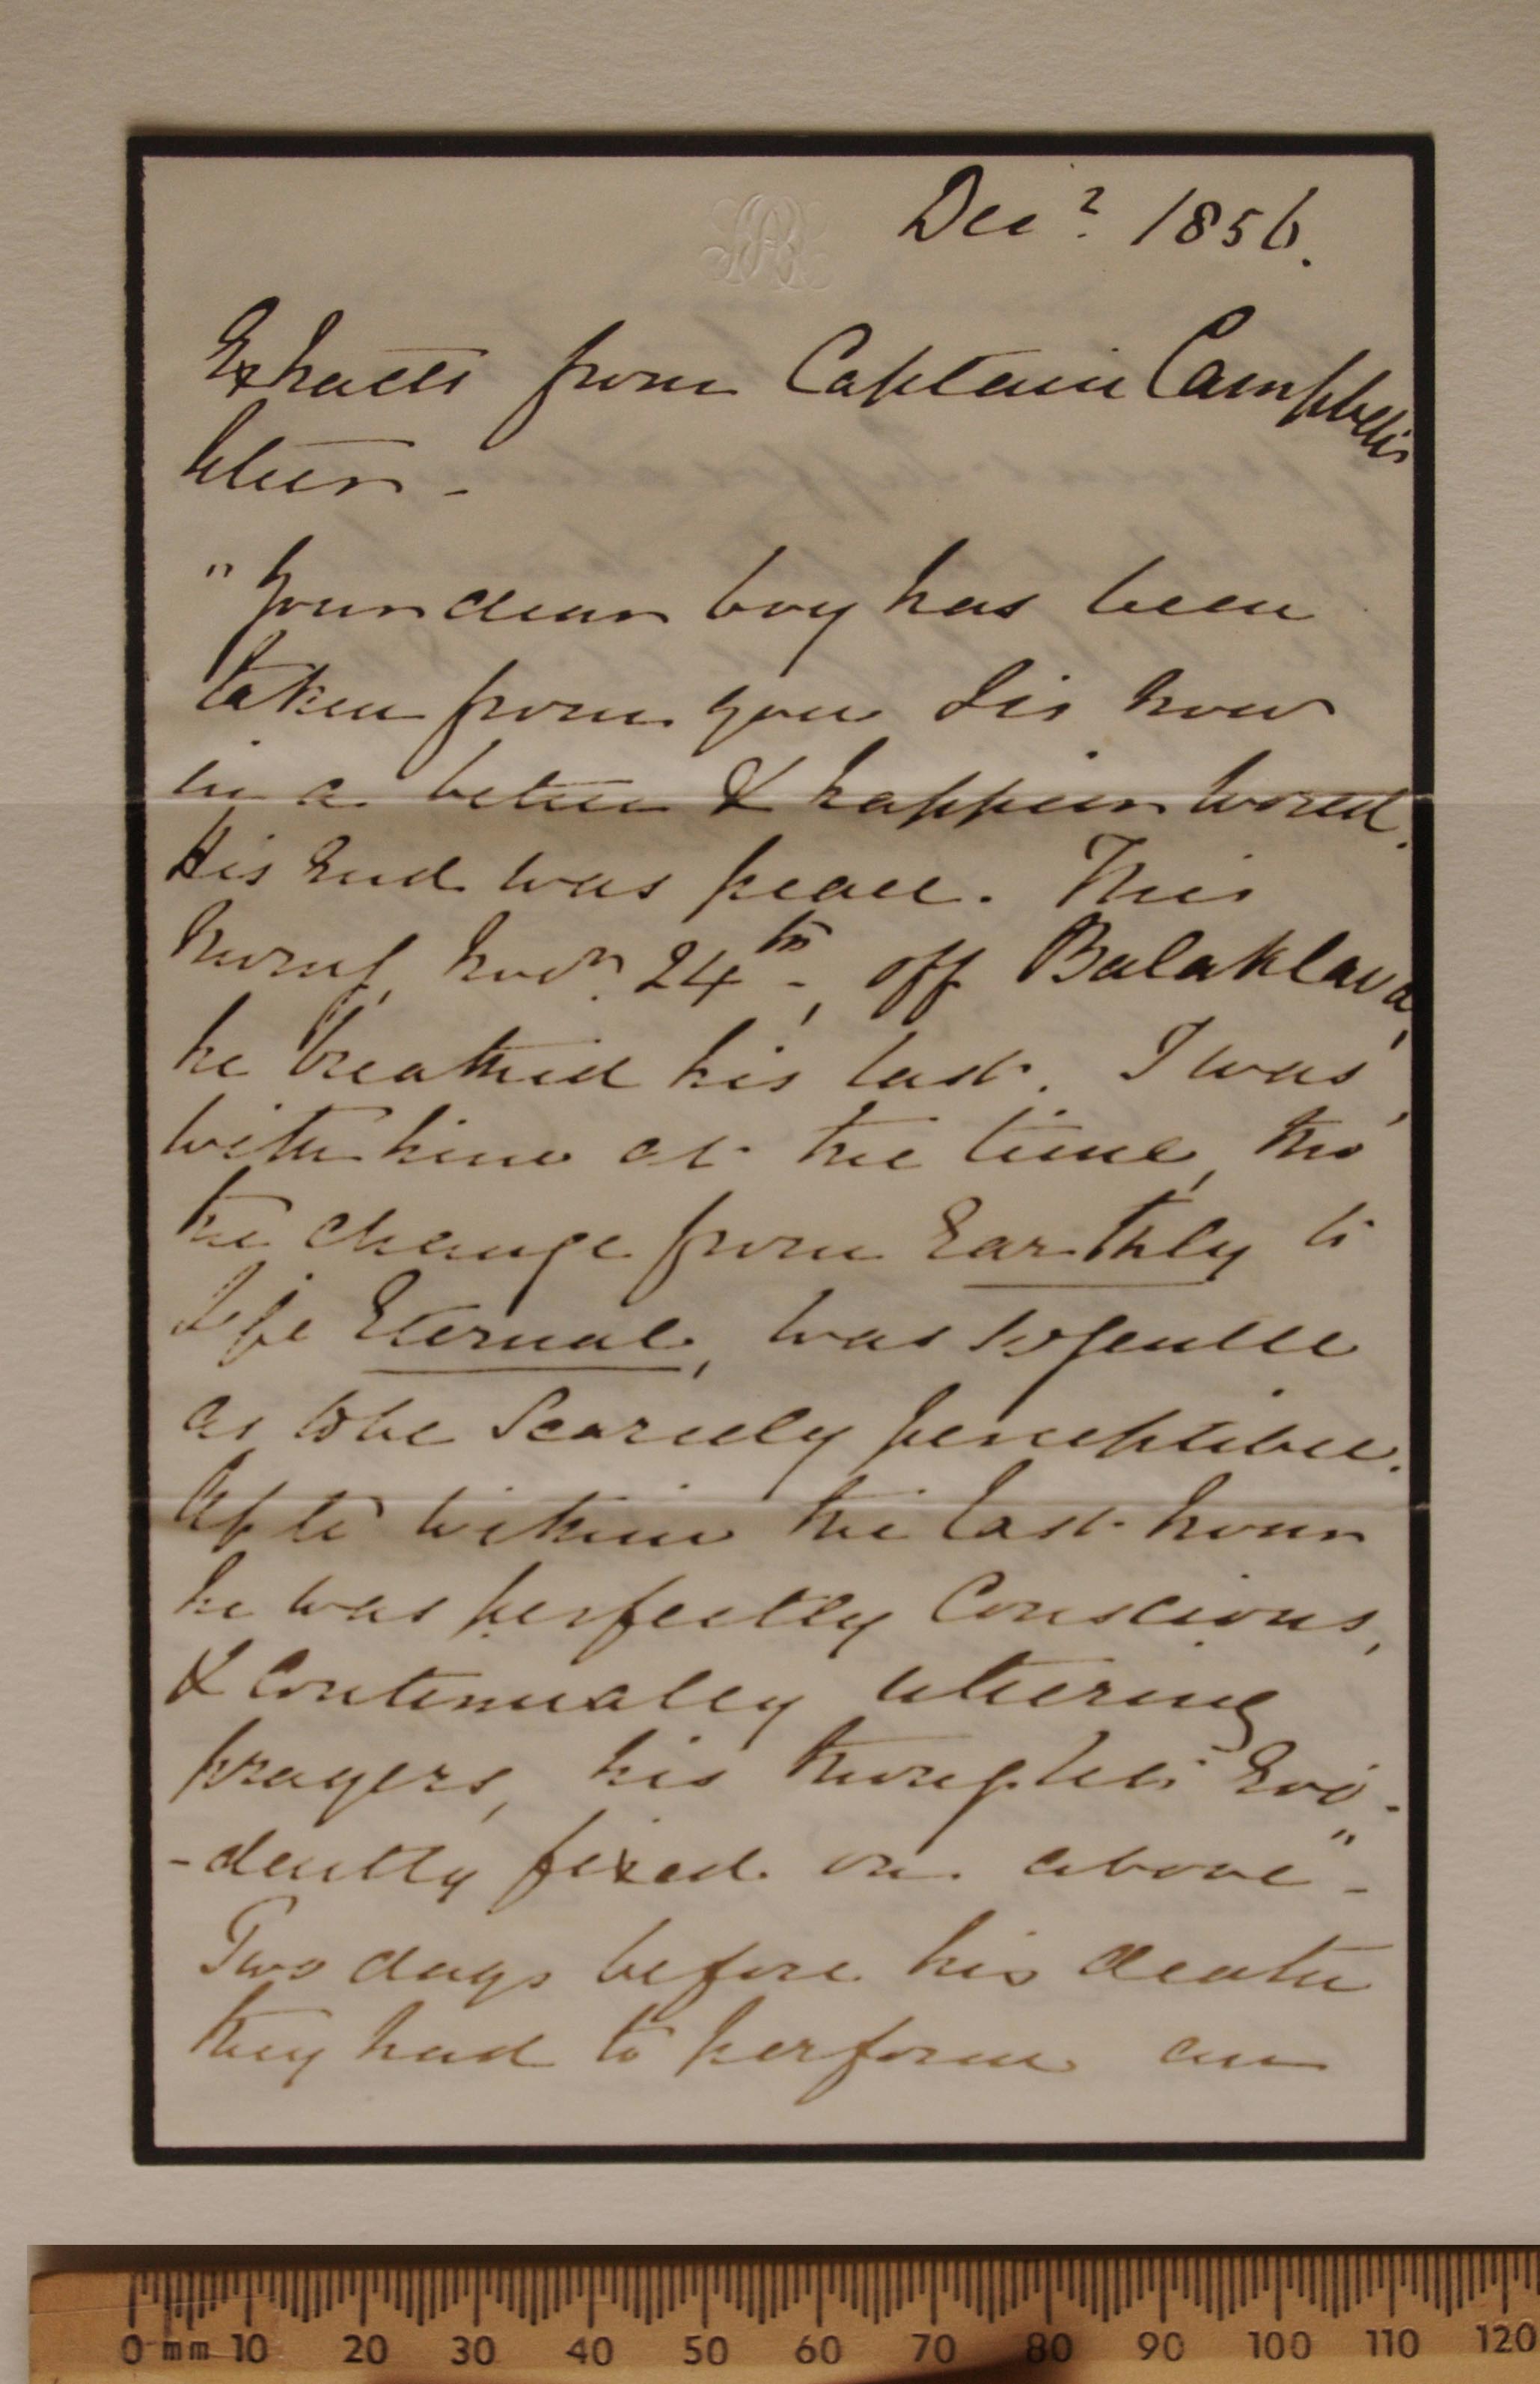 Decr. 1856.
Extracts from Captain Campbell's
letter -
"Your dear boy has been
taken from you & is now
in a better & happier world.
His End was peace. This
morng, Novr. 24th., off Balaklava,
he breathed his last. I was
with him at the time, tho'
the change from Earthly to
Life Eternal, was so gentle
as to be Scarcely perceptible.
Up to within the last hour
he was perfectly Conscious,
& Continually uttering
prayers, his thoughts Evi-
-dently fixed on above" -
Two days before his death
they had to perform an
0 mm 10 20 30 40 50 60 70 80 90 100 110 120